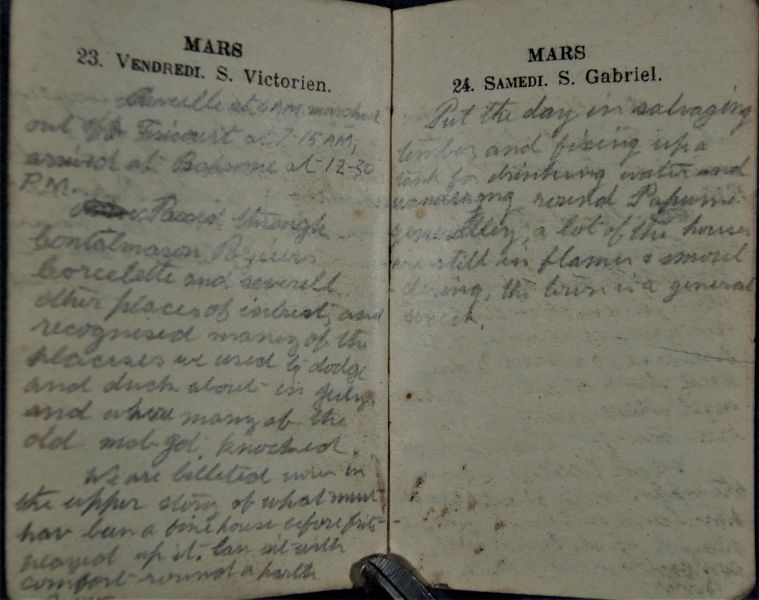 MARS
23. VENDREDI. S. Victorien.
Reveille at 6 AM, marched
out off Fricourt at 7-15 AM,
arrived at Bapaume at 12-30
P.M.
Passed through
Contalmason, Pozieres
Corcelette and severell
other places of intrest, and
recognised many of the
placeses we used to dodge
and duck about in July
and where many of the
old mob got knocked.
We are billeted now in
the upper story of what must
hav been a fine house before fritz
up it. Can sit with
comfort round a
MARS
24. SAMEDI. S. Gabriel.
Put the day in salvaging
timber, and fixing up a
tank for drinking water and
wandering round Papume
generally, a lot of the houses
are still in flames & smoul
dering, the town is a general
wreck.